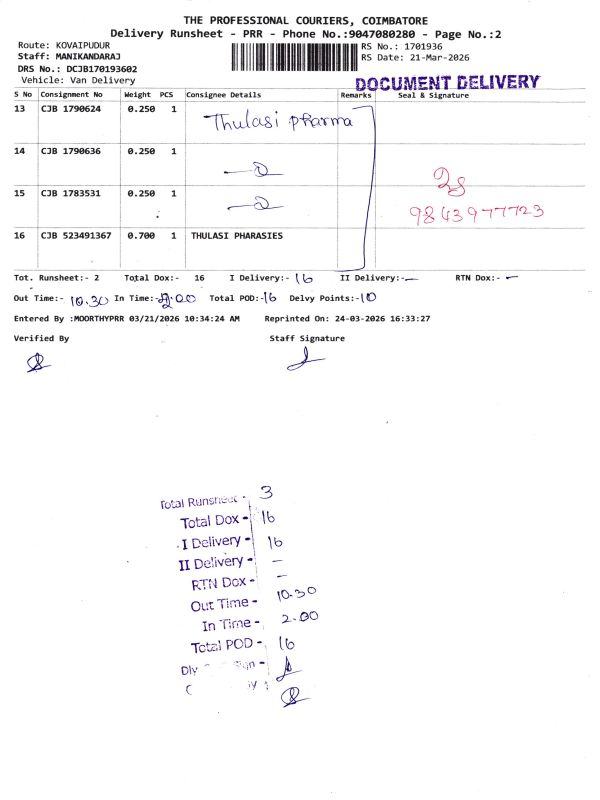 THE PROFESSIONAL COURIERS, COIMBATORE
Delivery Runsheet - PRR - Phone No.:9047080280 - Page No.:2
Route: KOVAIPUDUR
RS No.: 1701936
Staff: MANIKANDARAJ
RS Date: 21-Mar-2026
DRS No.: DCJB170193602
Vehicle: Van Delivery
DOCUMENT DELIVERY
S No Consignment No Weight PCS Consignee Details Remarks Seal & Signature
13 CJB 1790624 0.250 1 Thulasi pharma
14 CJB 1790636 0.250 1
15 CJB 1783531 0.250 1
9843977723
16 CJB 523491367 0.700 1 THULASI PHARASIES
Tot. Runsheet:- 2 Total Dox:- 16 I Delivery:- 16 II Delivery:- — RTN Dox:- —
Out Time:- 10.30 In Time:- 2.00 Total POD:- 16 Delvy Points:- 10
Entered By :MOORTHYPRR 03/21/2026 10:34:24 AM Reprinted On: 24-03-2026 16:33:27
Verified By Staff Signature
Total Runsheet - 3
Total Dox - 16
I Delivery - 16
II Delivery - —
RTN Dox - —
Out Time - 10.30
In Time - 2.00
Total POD - 16